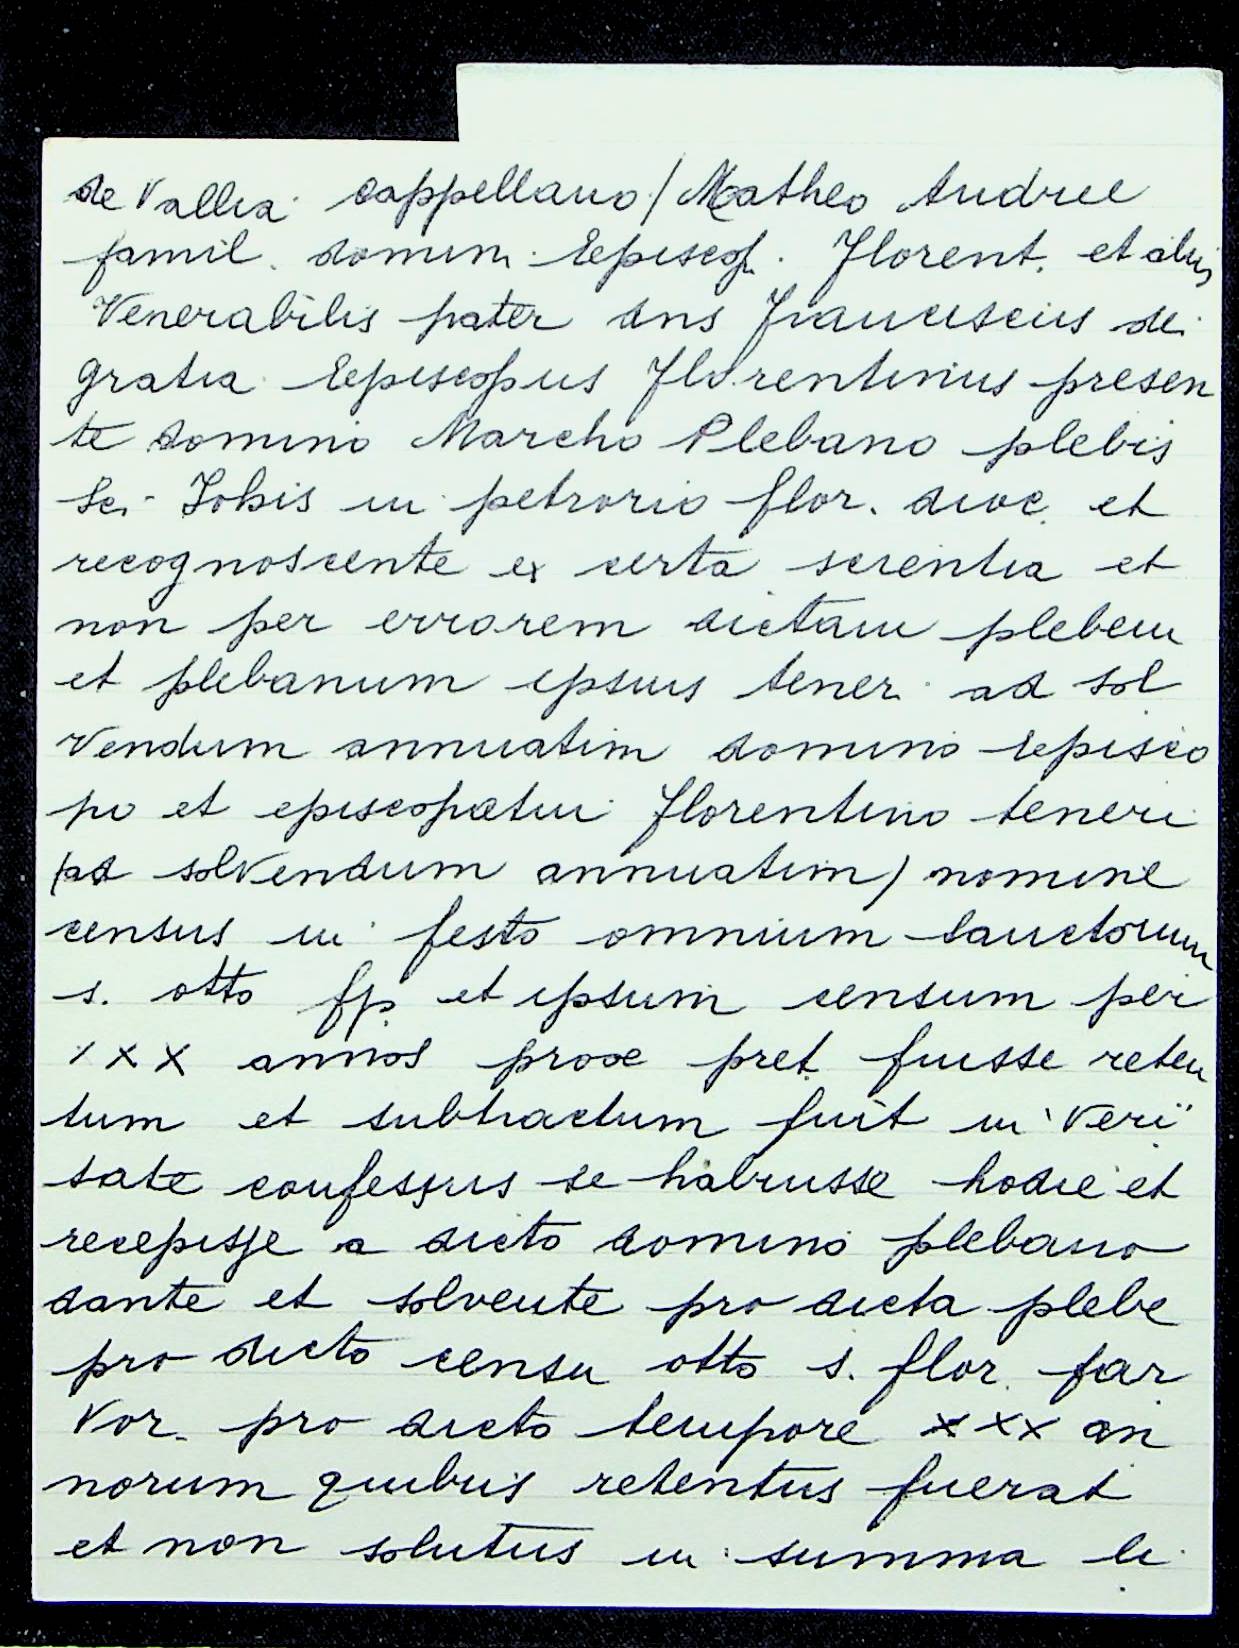 de Vallia cappellano / Matheo Andree
famil. domini Episcop. Florent. et aliis
Venerabilis pater dns Franciscus dei
gratia Episcopus Florentinus presen
te domino Marcho Plebano plebis
Sci Johis in petrorio flor. dioc. et
recognoscente ex certa scientia et
non per errorem dictam plebem
et plebanum ipsius teneri ad sol
vendum annuatim domino episco
po et episcopatui florentino teneri
(ad solvendum annuatim) nomine
census in festo omnium sanctorum
s. otto fp et ipsum censum per
xxx annos prox pret. fuisse reten
tum et subtractum fuit in veri
tate confessus se habuisse hodie et
recepisse a dicto domino plebano
dante et solvente pro dicta plebe
pro dicto censu otto s. flor. par
vor. pro dicto tempore xxx an
norum quibus retentus fuerat
et non solutus in summa li